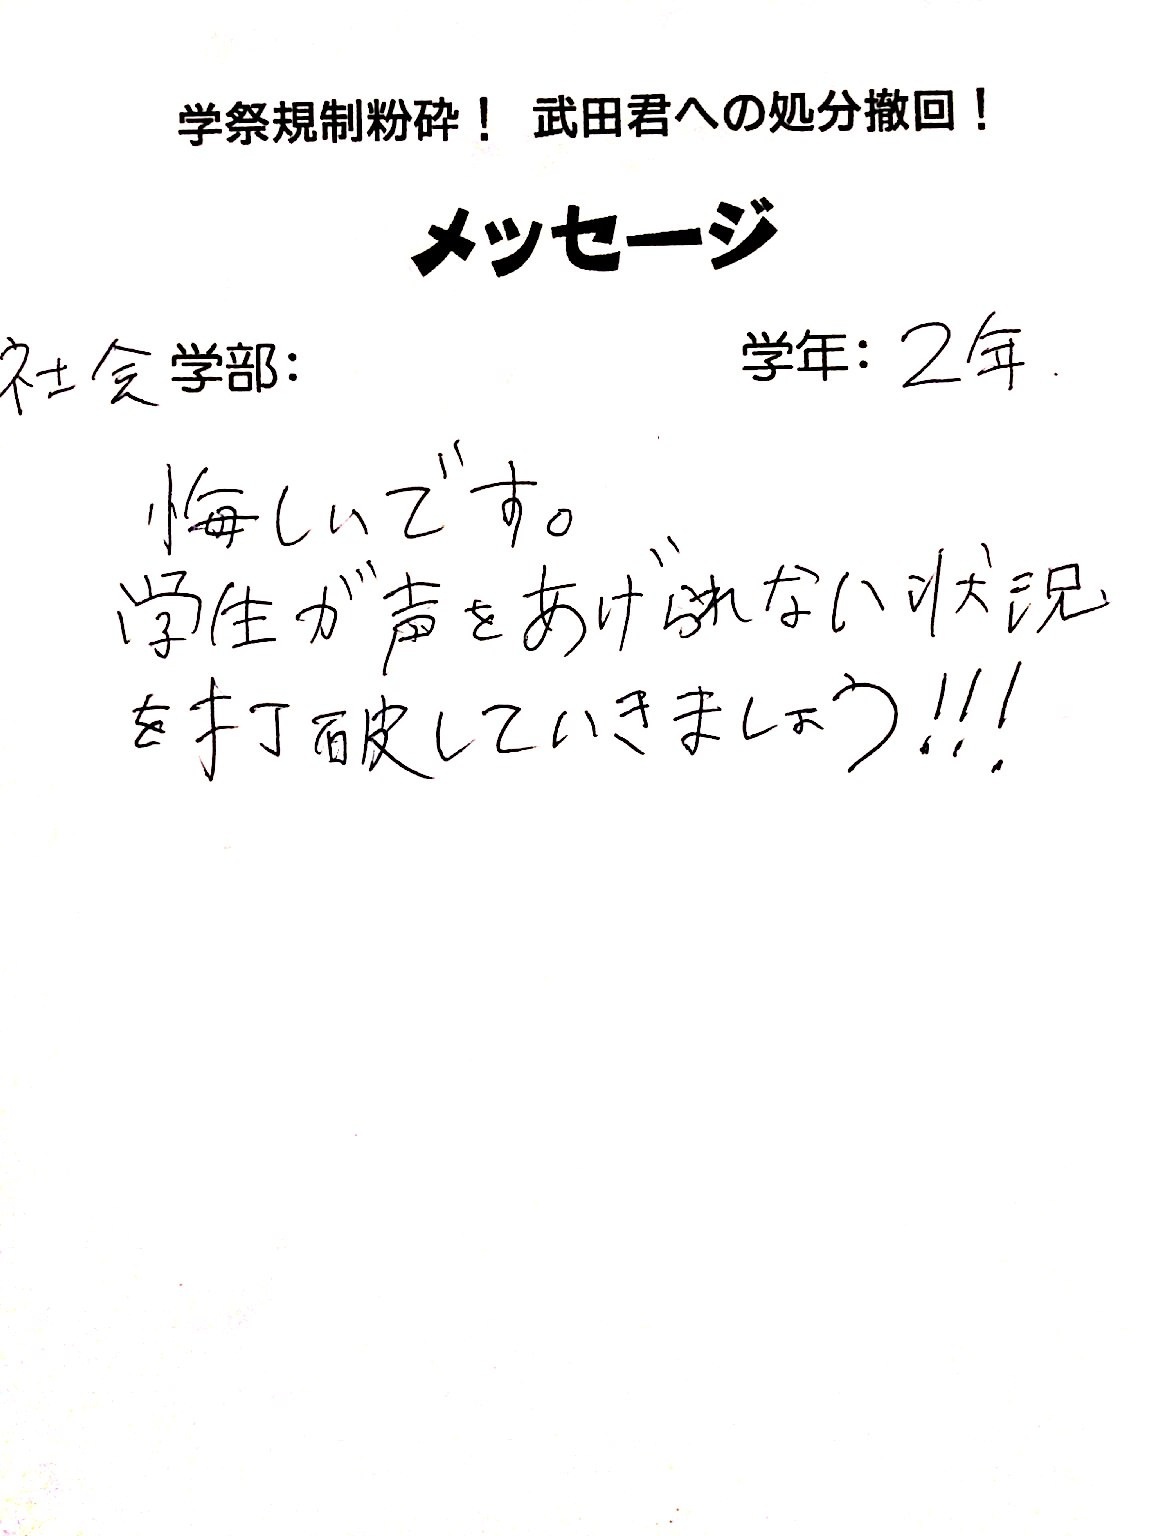 学祭規制粉砕！ 武田君への処分撤回！
メッセージ
社会学部： 学年：2年.
悔しいです。
学生が声をあげられない状況
を打破していきましょう!!!